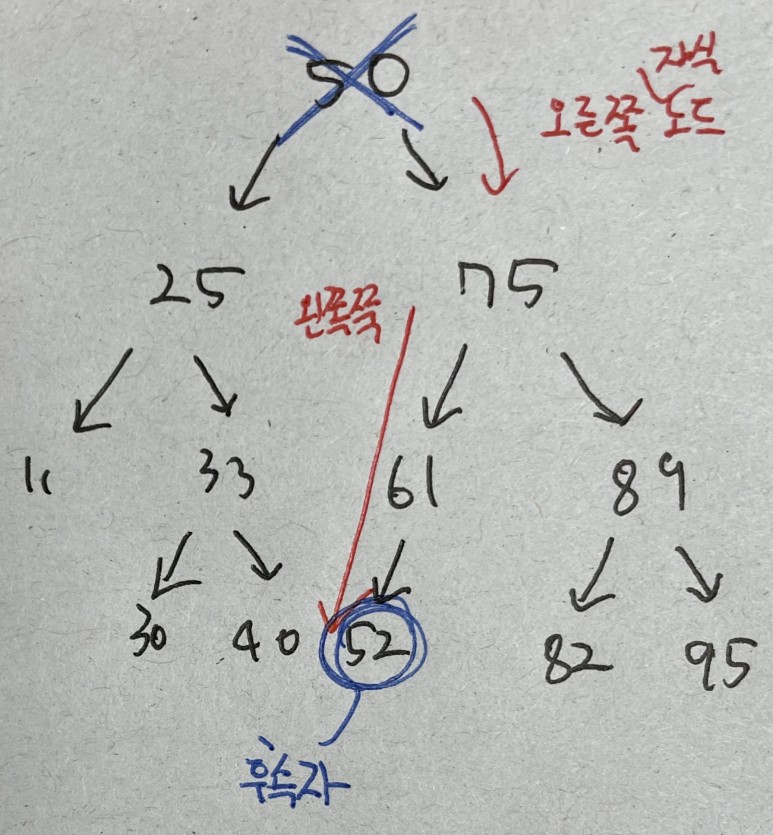 50
자식
오른쪽 노드
25
75
왼쪽쪽
11
33
61
89
30 40 52 82 95
후속자